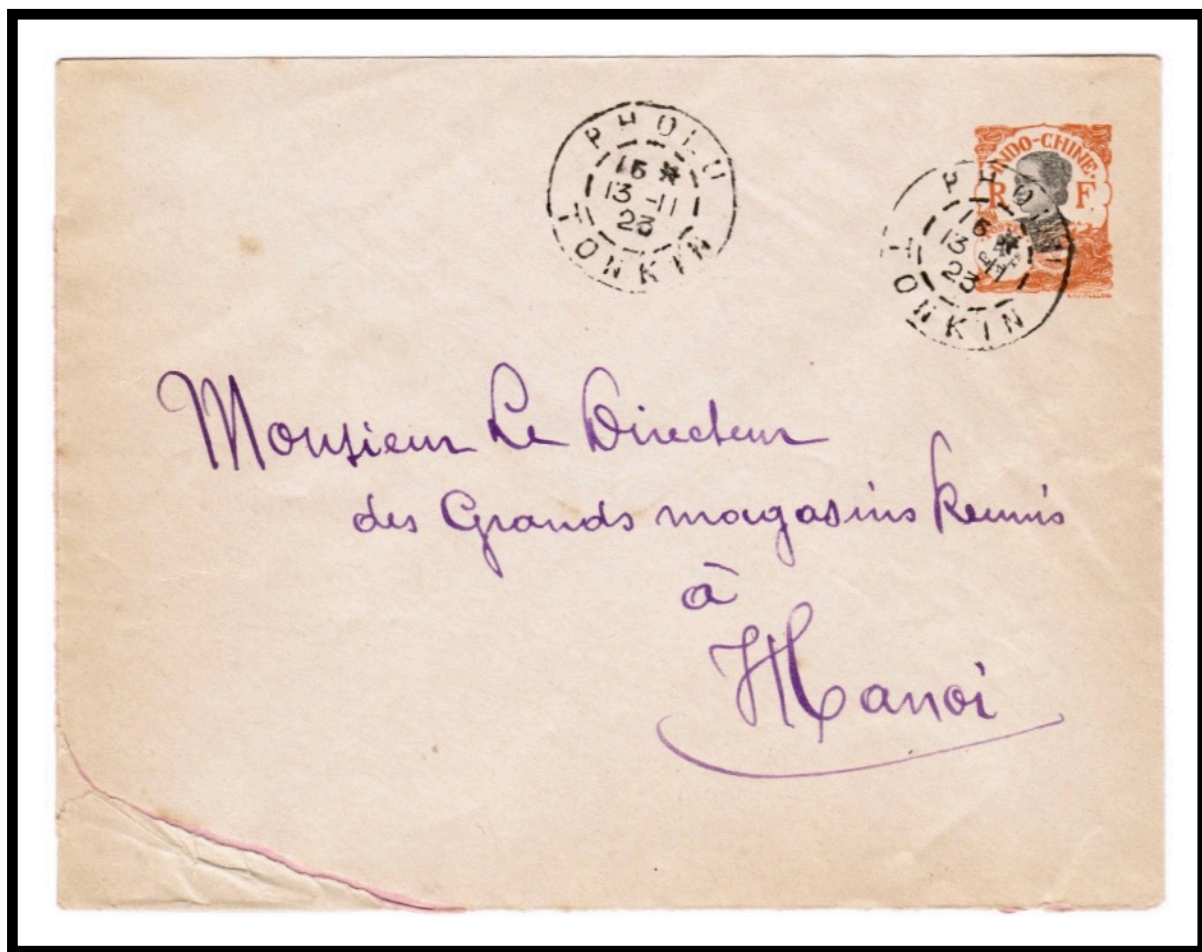 PHOLU
16 *
13 -11
23
TONKIN
INDO-CHINE
R F
PHOLU
16 *
13 11
23
TONKIN
Monsieur Le Directeur
des Grands magasins Reunis
à
Hanoi